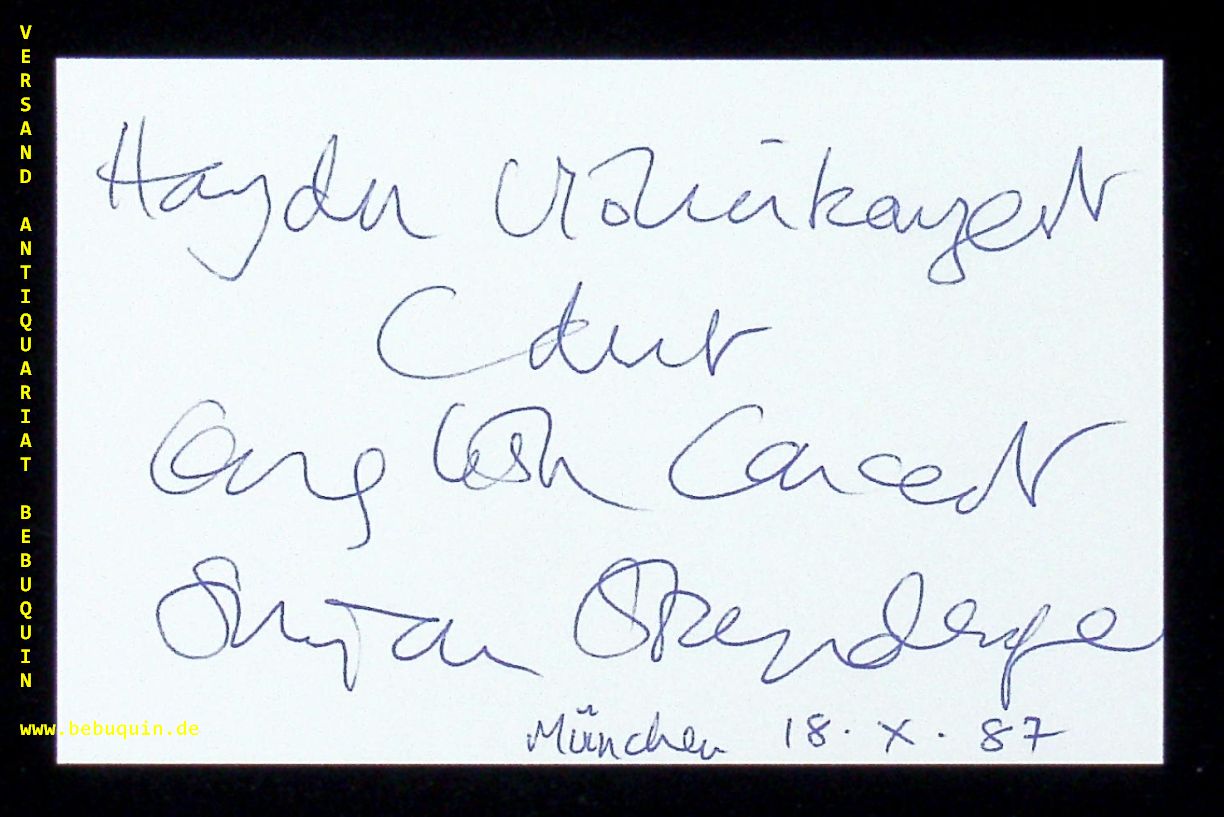 VERSAND ANTIQUARIAT BEBUQUIN
Haydn Violinkonzert
C dur
English Concert
Simon Standage
München 18. X. 87
www.bebuquin.de